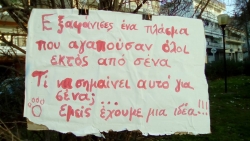 Εξαφάνισες ένα πλάσμα
που αγαπούσαν όλοι
εκτός από σένα.
Τί να σημαίνει αυτό για
σένα;...
εμείς έχουμε μια ιδέα...!!!